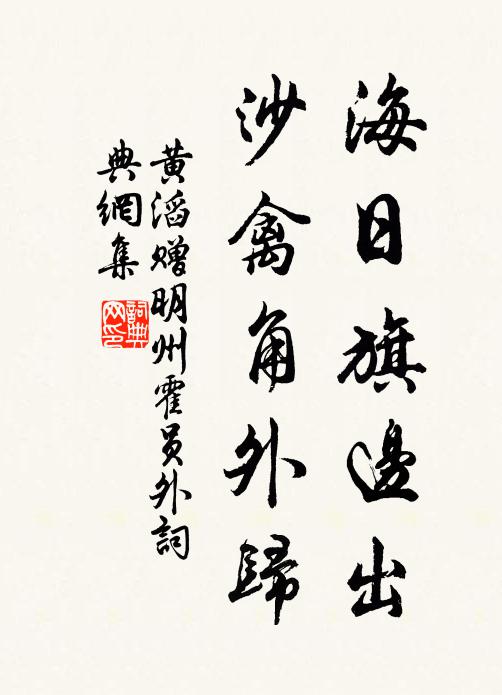 海日旗邊出
沙禽角外歸
黃滔赠明州霍员外詞
典網集
詞典
网印